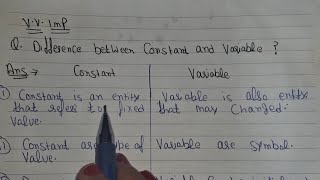 V.V. Imp
Q. Difference between Constant and Variable ?
Ans → Constant Variable
① Constant is an entity Variable is also entity
that refers to fixed that may Changed.
Value.
Constant are type of Variable are Symbol.
Value.